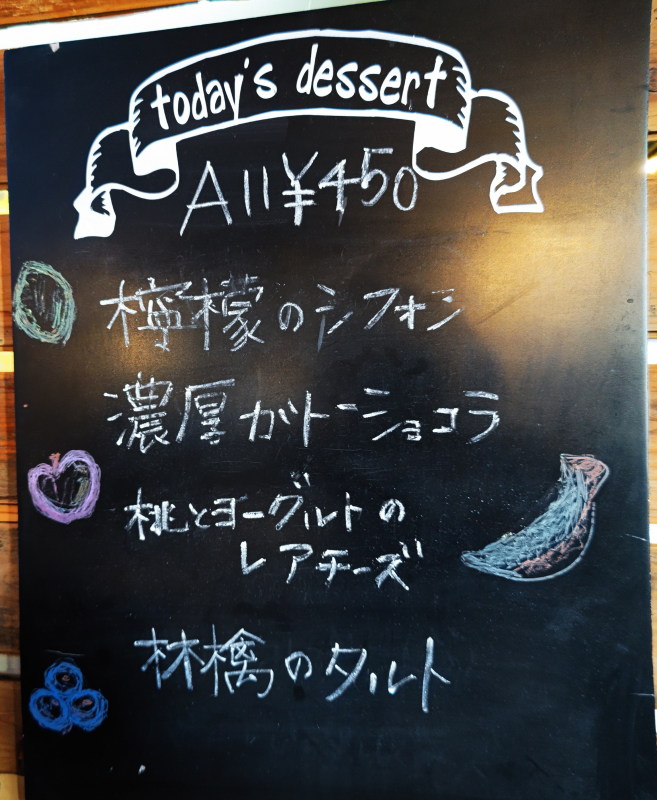 today's dessert
All ¥450
檸檬のシフォン
濃厚ガトーショコラ
桃とヨーグルトの
レアチーズ
林檎のタルト